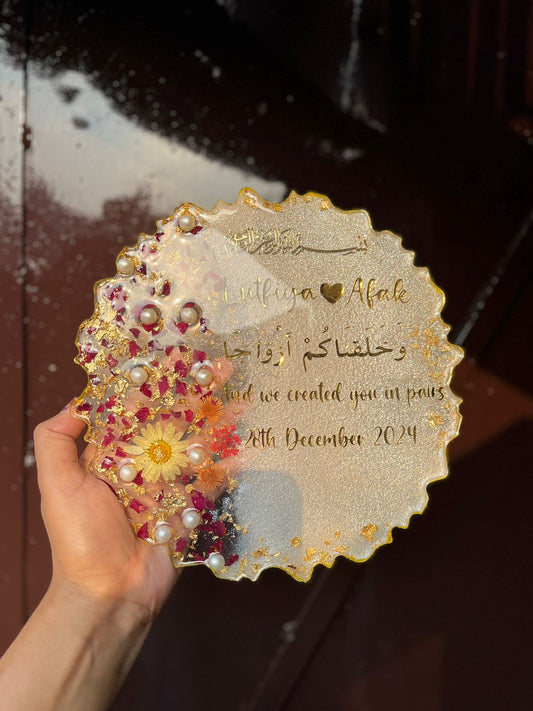 بسم الله الرحمن الرحيم
Lutfiya ♥ Afak
وَخَلَقْنَاكُمْ أَزْوَاجًا
And we created you in pairs
28th December 2024